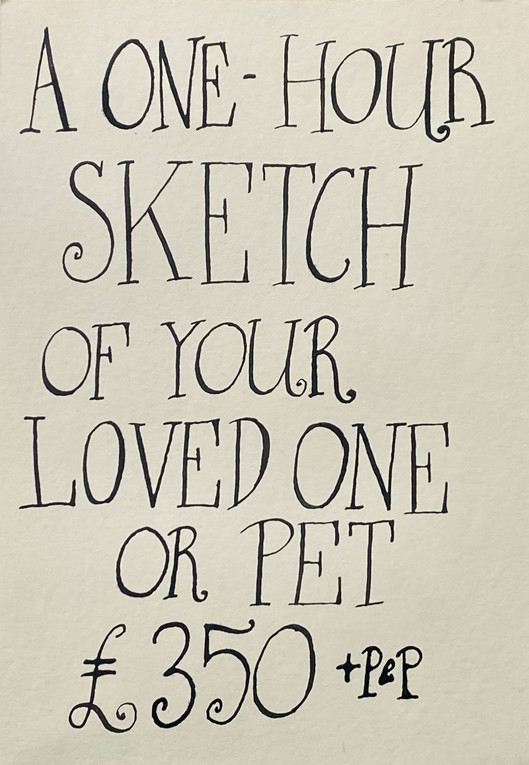 A ONE-HOUR
SKETCH
OF YOUR
LOVED ONE
OR PET
£350 +P&P